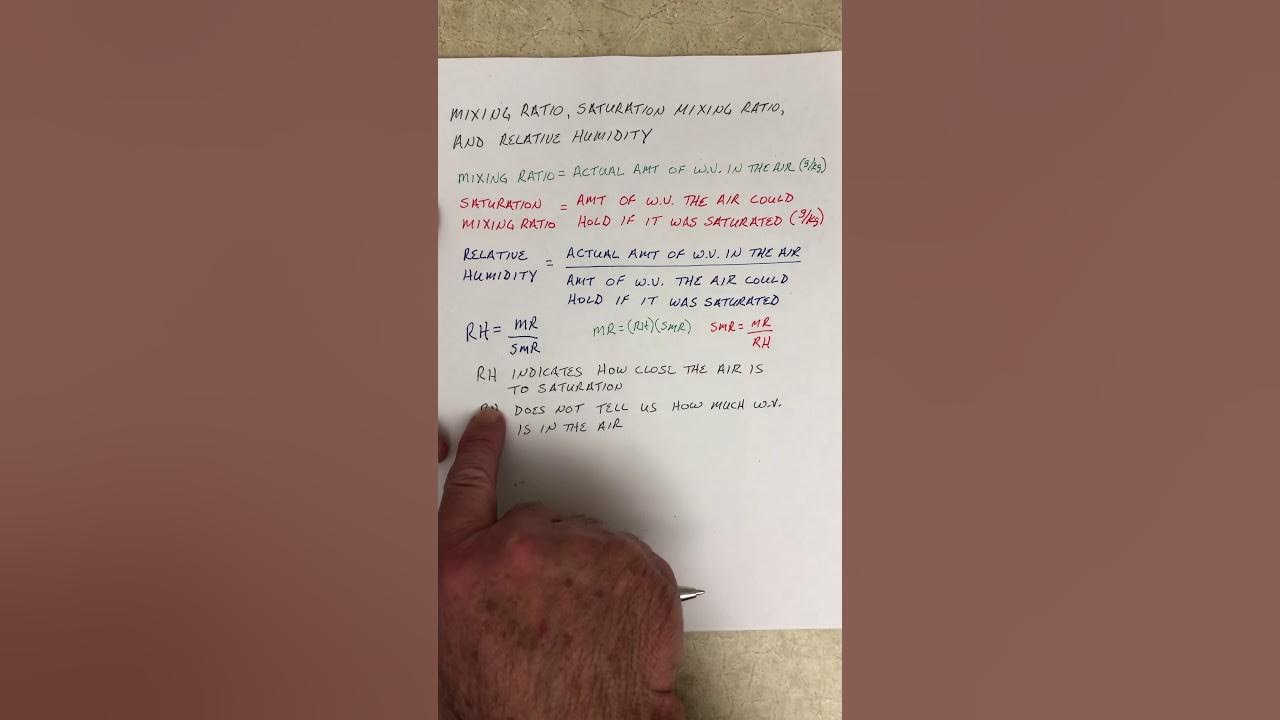 MIXING RATIO, SATURATION MIXING RATIO,
AND RELATIVE HUMIDITY
MIXING RATIO = ACTUAL AMT OF W.V. IN THE AIR (g/kg)
SATURATION MIXING RATIO = AMT OF W.V. THE AIR COULD
HOLD IF IT WAS SATURATED (g/kg)
RELATIVE HUMIDITY = ACTUAL AMT OF W.V. IN THE AIR
AMT OF W.V. THE AIR COULD
HOLD IF IT WAS SATURATED
RH = MR/SMR MR = (RH)(SMR) SMR = MR/RH
RH INDICATES HOW CLOSE THE AIR IS
TO SATURATION
RH DOES NOT TELL US HOW MUCH W.V.
IS IN THE AIR